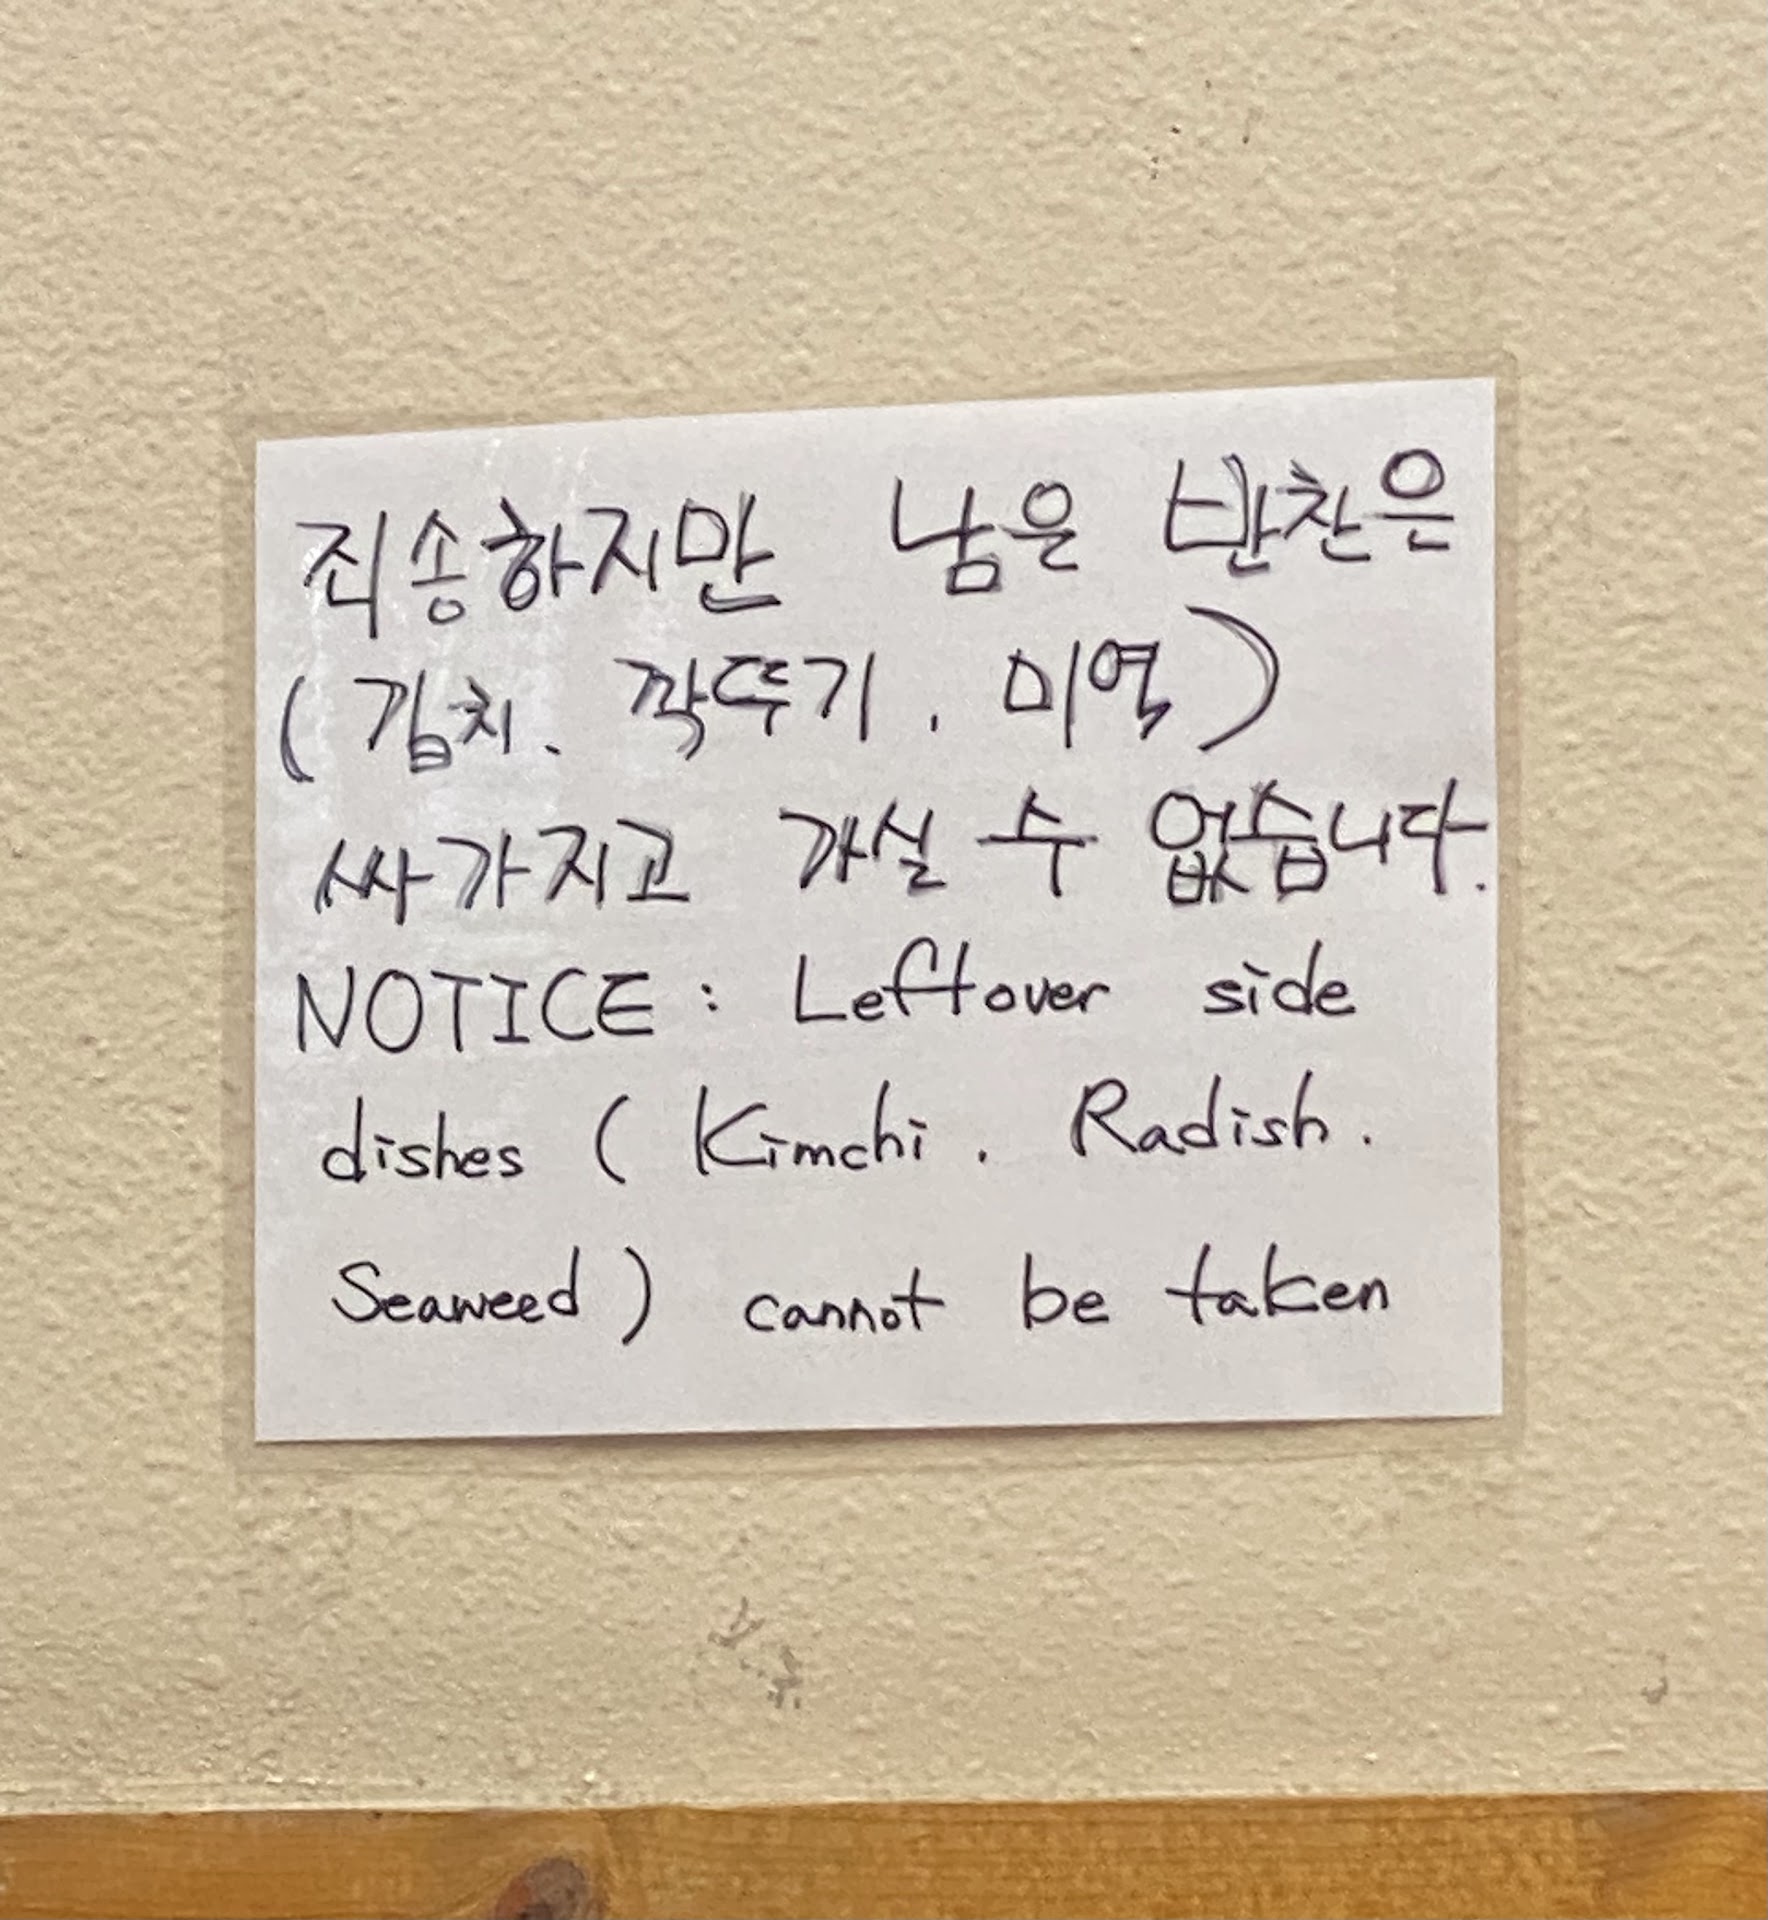 죄송하지만 남은 반찬은
(김치. 깍뚜기. 미역)
싸가지고 가실 수 없습니다.
NOTICE: Leftover side
dishes (Kimchi. Radish.
Seaweed) cannot be taken